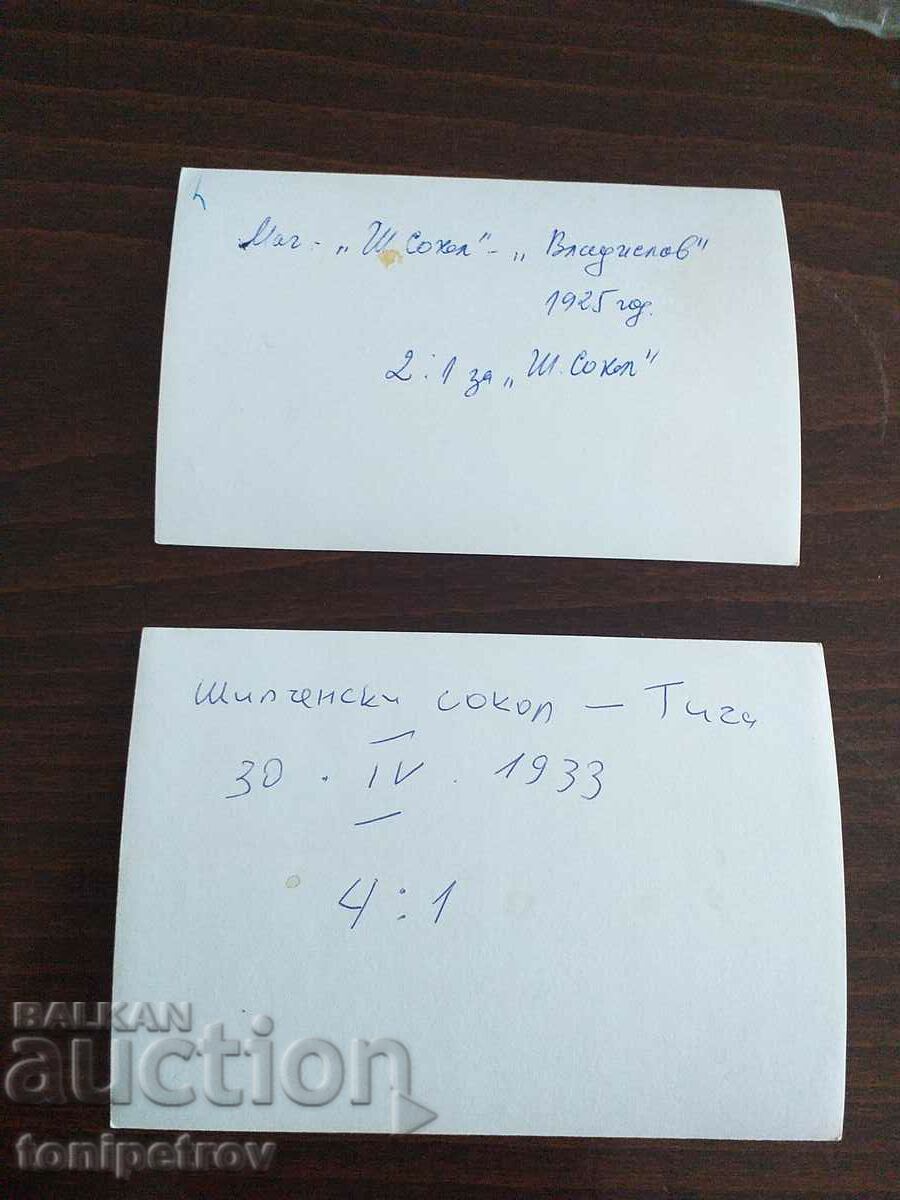 Мач - „Ш. Сокол" - „Владислав"
1925 год.
2:1 за „Ш. Сокол"
Шипченски сокол — Тича
30 . IV . 1933
4:1
BALKAN
auction
tonipetrov